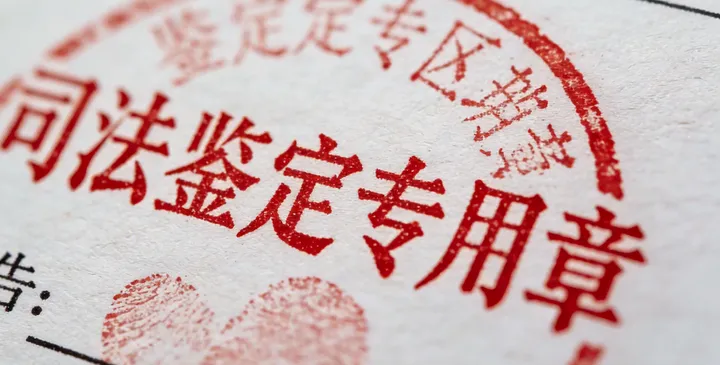 鉴定定专区
章
司法鉴定专用章
告: